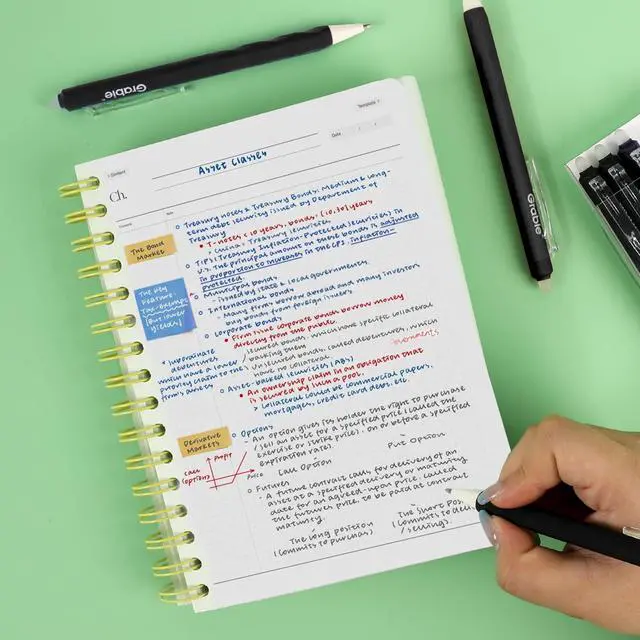 Grable
Grable
< Content
Template >
Ch.
Date
Asset Classes
Treasury notes & Treasury Bonds: Medium & long-
term debt security issued by Department of
Treasury
T-notes < 10 years, bonds: (10,30) years
TIPS (Treasury Inflation-Protected Securities) in
U.S. The principal amount on these bonds is adjusted
in proportion to increases in the CPI. Inflation-
protected.
The Bond
Market
Municipal bonds
- issued by state & local governments.
The key
Feature:
Tax-exempt
(but lower
yields)
International bonds
- Many firms borrow abroad and many investors
buy bonds from foreign issuers
Corporate bonds
Firms issue corporate bonds borrow money
directly from the public.
secured bonds, which have specific collateral
backing them
Unsecured bonds, called debentures, which
have no collateral.
subordinate
debentures,
which have a lower
priority claim to the
firm's assets
Asset-backed securities (ABS)
An ownership claim in an obligation that
is secured by such a pool.
collateral could be commercial papers,
mortgages, credit card debt, etc.
Derivative
Markets
Options
- An option gives its holder the right to purchase
/ sell an asset for a specified price (called the
exercise or strike price). on or before a specified
expiration rates)
Call
(option)
Profit
Price
Call Option
Put Option
Futures
- A future contract calls for delivery of an
asset at a specified delivery or maturity
date for an agreed-upon price, called
the futures price, to be paid at contract
maturity.
The long position
(commits to purchas)
The short pos
(commits to del
/ selling).